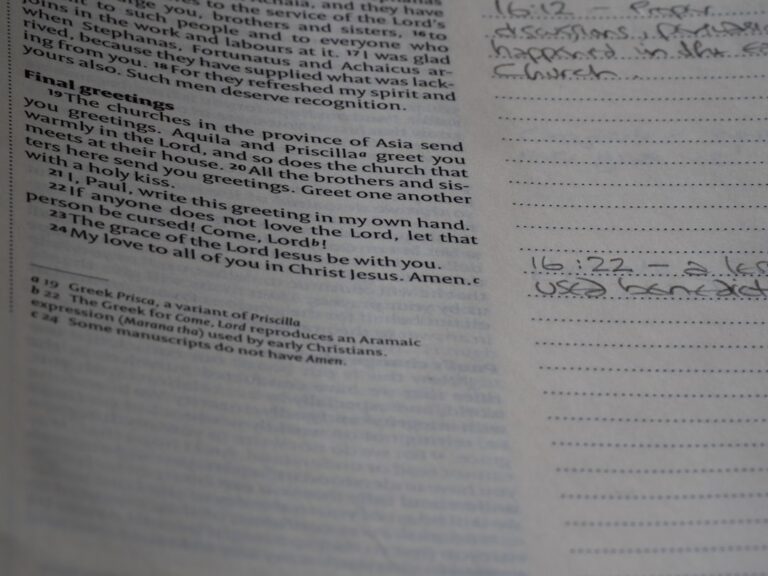 Achaia, and they have
to the service of the Lord's
you, brothers and sisters, 16 to
to such people and to everyone who
joins in the work and labours at it. 17 I was glad
when Stephanas, Fortunatus and Achaicus ar-
rived, because they have supplied what was lack-
ing from you. 18 For they refreshed my spirit and
yours also. Such men deserve recognition.
Final greetings
19 The churches in the province of Asia send
you greetings. Aquila and Priscilla a greet you
warmly in the Lord, and so does the church that
meets at their house. 20 All the brothers and sis-
ters here send you greetings. Greet one another
with a holy kiss.
21 I, Paul, write this greeting in my own hand.
22 If anyone does not love the Lord, let that
person be cursed! Come, Lord b!
23 The grace of the Lord Jesus be with you.
24 My love to all of you in Christ Jesus. Amen. c
a 19 Greek Prisca, a variant of Priscilla
b 22 The Greek for Come, Lord reproduces an Aramaic
expression (Marana tha) used by early Christians.
c 24 Some manuscripts do not have Amen.
16:12 - Proper
discussions,
happened in the
church.
16:22 - a
used